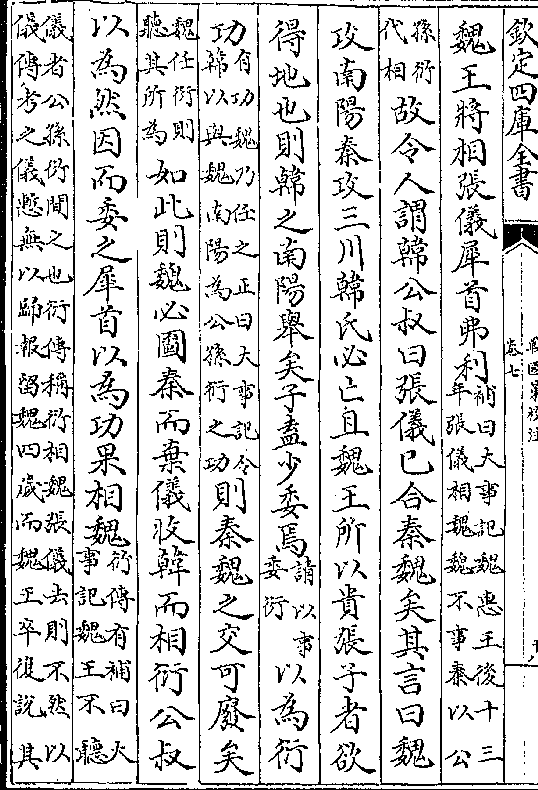 欽定四庫全書
戰國策校注
卷七
魏王將相張儀犀首弗利補曰大事記魏惠王後十三
年張儀相魏魏不事秦以公
孫衍
代相故令人謂韓公叔曰張儀已合秦魏矣其言曰魏
攻南陽秦攻三川韓氏必亡且魏王所以貴張子者欲
得地也則韓之南陽舉矣子盍少委焉請以事
委衍以為衍
功有功魏乃任之正曰大事記令
韓以與魏南陽為公孫衍之功則秦魏之交可廢矣
魏任衍則
聽其所為如此則魏必圖秦而棄儀收韓而相衍公叔
以為然因而委之犀首以為功果相魏衍傳有補曰大
事記魏王不聽
儀者公孫衍間之也衍傳稱衍相魏張儀去則不然以
儀傳考之儀慙無以歸報留魏四歲而魏王卒復說其